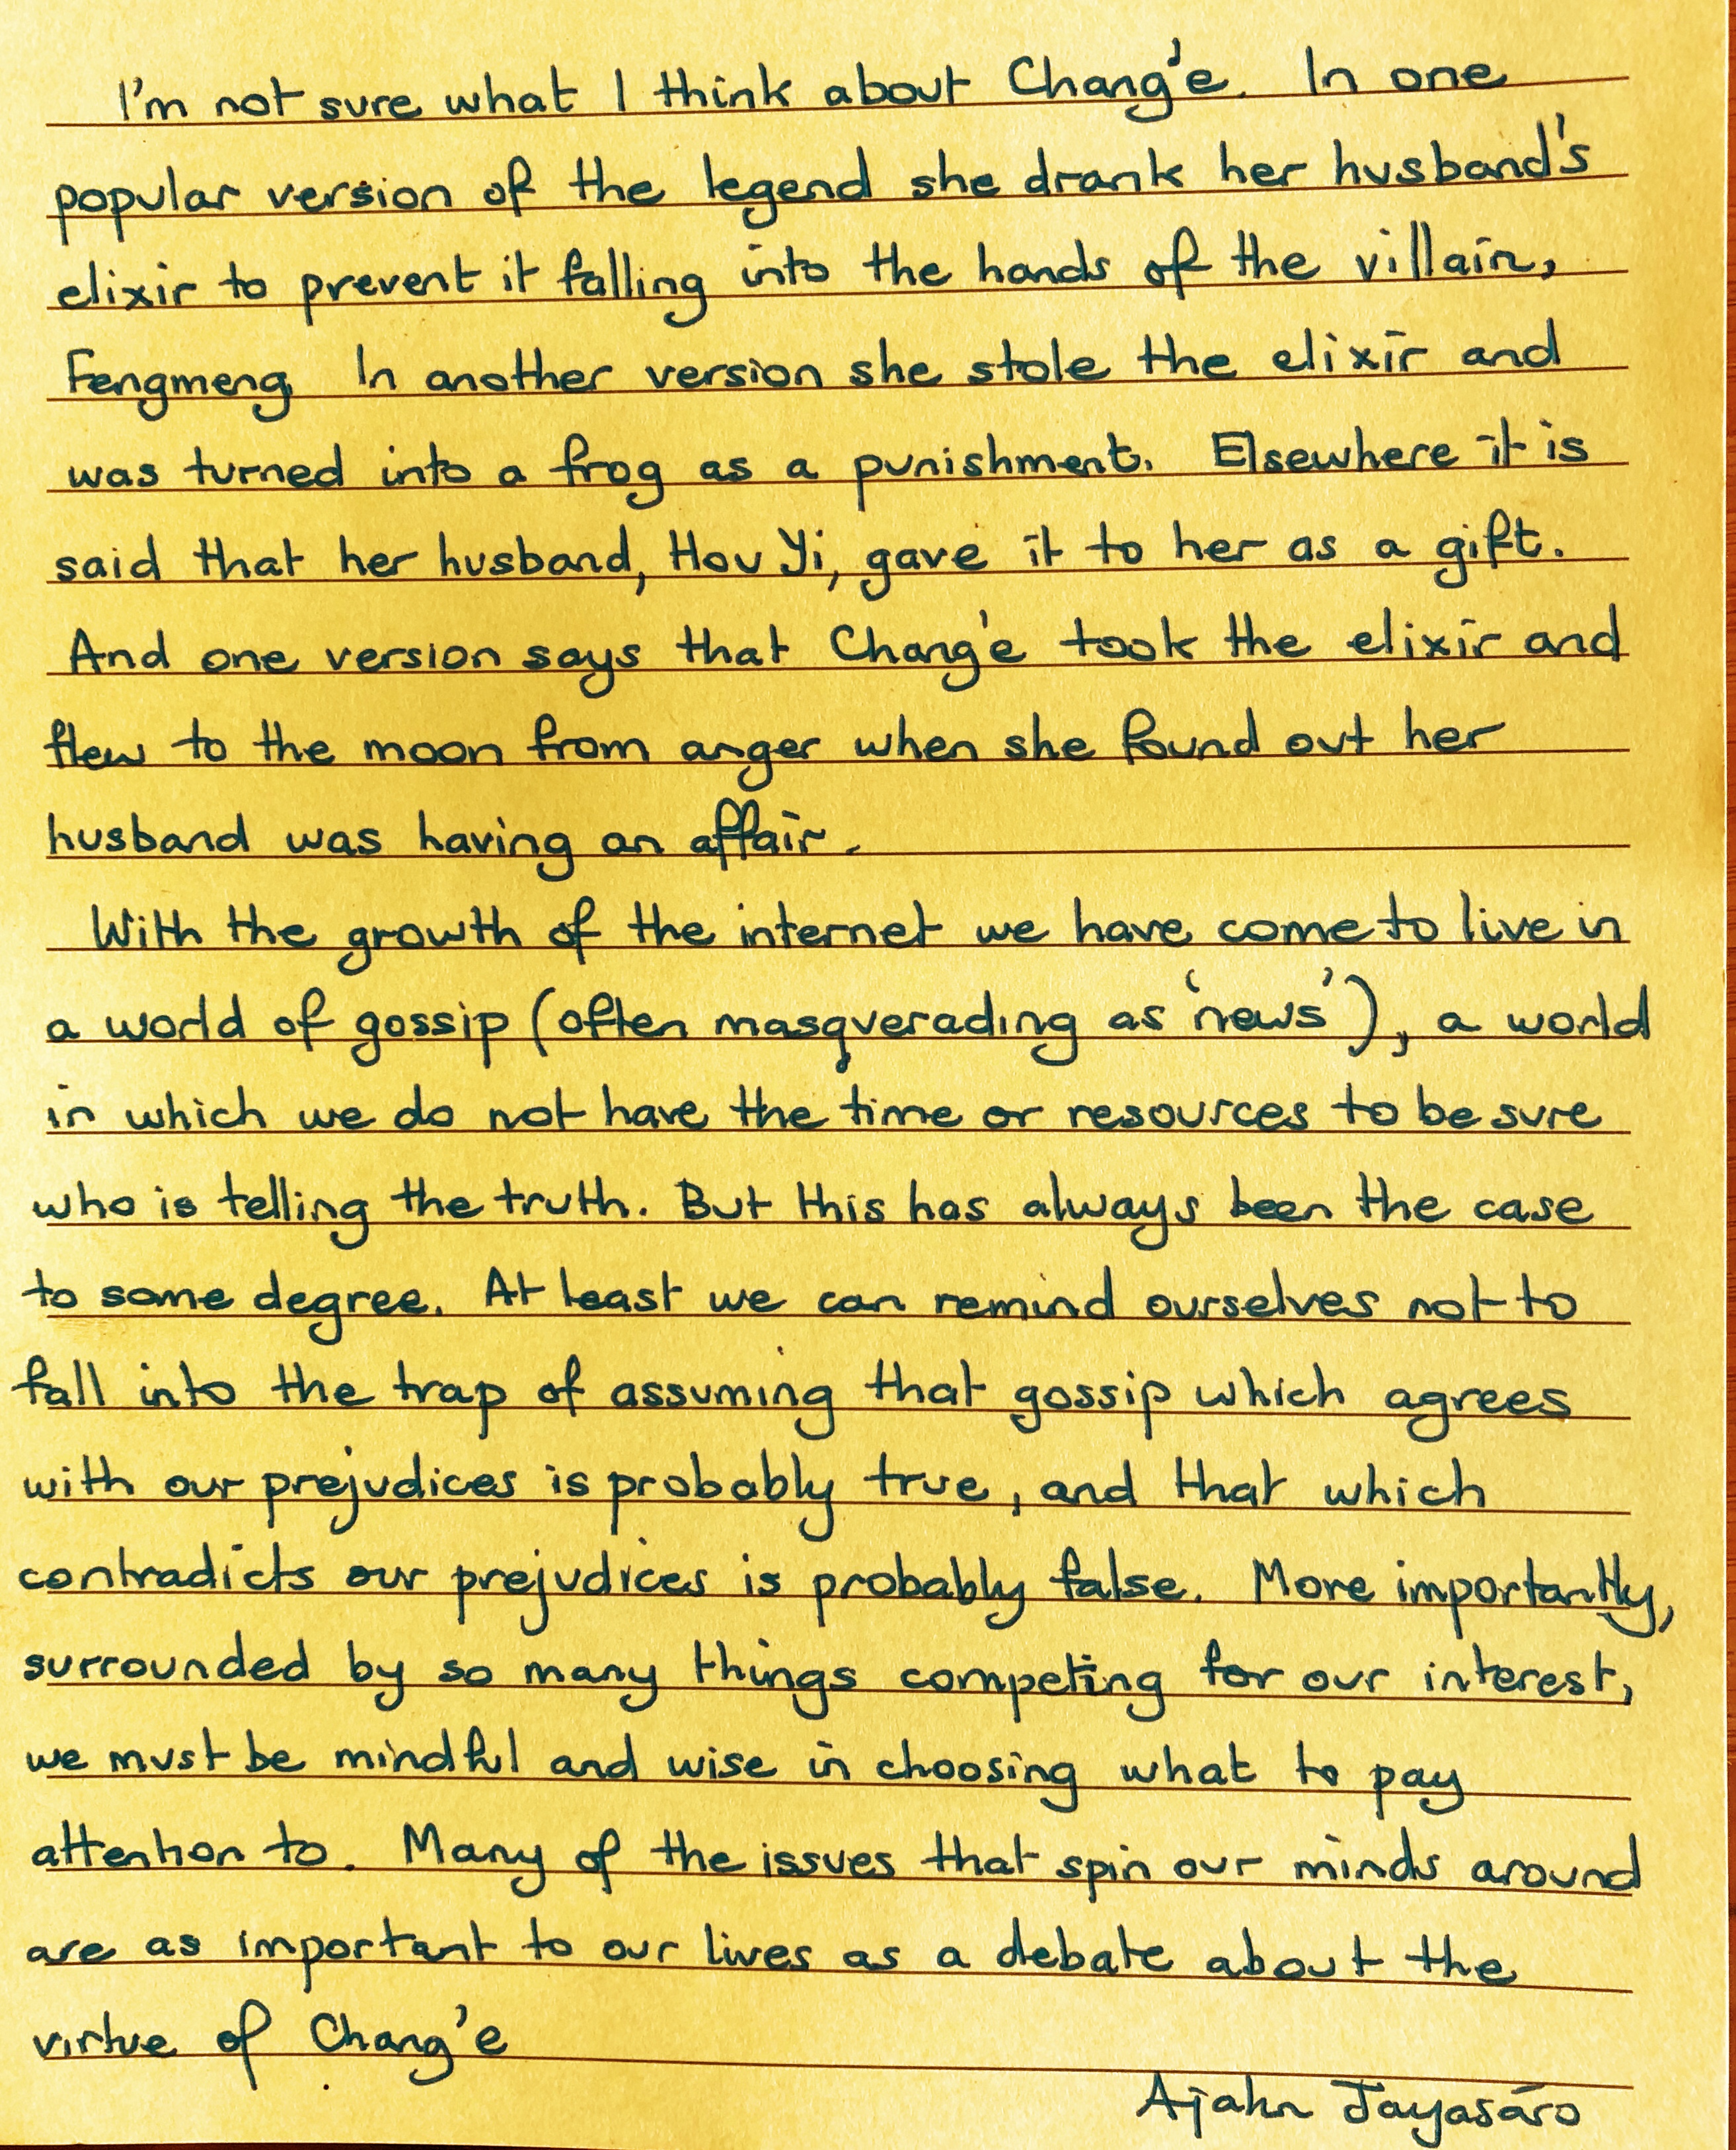 I'm not sure what I think about Chang'e. In one
popular version of the legend she drank her husband's
elixir to prevent it falling into the hands of the villain,
Fengmeng. In another version she stole the elixir and
was turned into a frog as a punishment. Elsewhere it is
said that her husband, Hou Yi, gave it to her as a gift.
And one version says that Chang'e took the elixir and
flew to the moon from anger when she found out her
husband was having an affair.
With the growth of the internet we have come to live in
a world of gossip (often masquerading as 'news'), a world
in which we do not have the time or resources to be sure
who is telling the truth. But this has always been the case
to some degree. At least we can remind ourselves not to
fall into the trap of assuming that gossip which agrees
with our prejudices is probably true, and that which
contradicts our prejudices is probably false. More importantly,
surrounded by so many things competing for our interest,
we must be mindful and wise in choosing what to pay
attention to. Many of the issues that spin our minds around
are as important to our lives as a debate about the
virtue of Chang'e
Ajahn Jayasāro